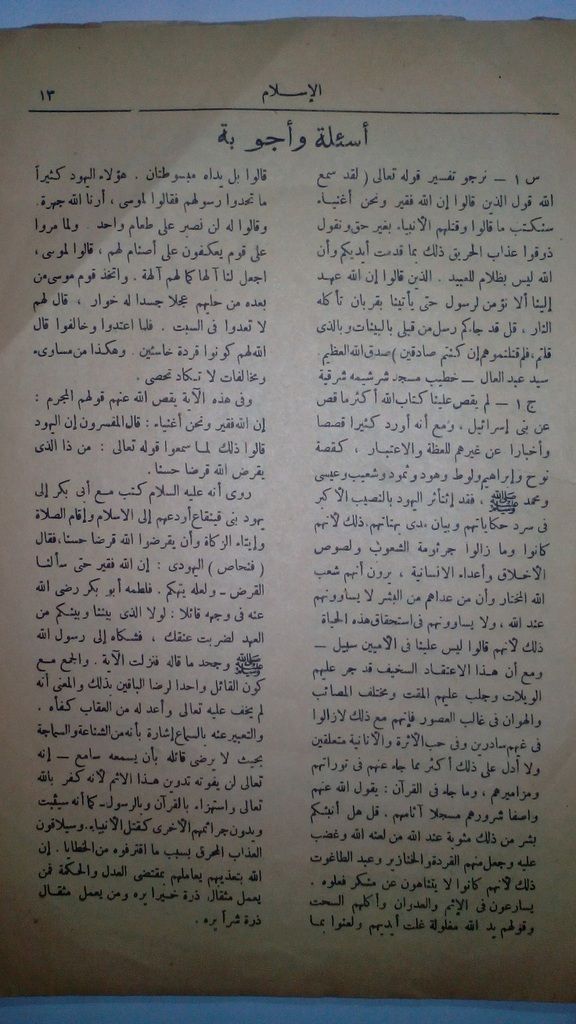 ١٣
الإسلام
أسئلة وأجوبة
س ١ — نرجو تفسير قوله تعالى ( لقد سمع
الله قول الذين قالوا إن الله فقير ونحن أغنيـاء
سنكتب ما قالوا وقتلهم الأنبياء بغير حق ونقول
ذوقوا عذاب الحريق ذلك بما قدمت أيديكم وأن
الله ليس بظلام للعبيد . الذين قالوا إن الله عهد
إلينا ألا نؤمن لرسول حتى يأتينا بقربان تأكله
النار ، قل قد جاءكم رسل من قبلى بالبينات وبالذى
قلتم، فلم قتلتموهم إن كنتم صادقين ) صدق الله العظيم.
سيد عبد العال — خطيب مسجد شرشيمه شرقية
ج ١ — لم يقص علينا كتاب الله أكثر ما قص
عن بنى إسرائيل ، ومع أنه أورد كثيرا قصصا
وأخبارا عن غيرهم للعظة والاعتبـار ، كقصة
نوح وإبراهيم ولوط وهود وثمود وشعيب وعيسى
ومحمد ﷺ ، فقد إثتأثر اليهود بالنصيب الأكبر
فى سرد حكاياتهم وبيان مدى بهتانهم، ذلك لأنهم
كانوا وما زالوا جرثومة الشعوب ولصوص
الأخـلاق وأعداء الانسانية ، يرون أنهم شعب
الله المختار وأن من عداهم من البشر لا يساوونهم
عند الله ، ولا يساوونهم فى استحقاق هذه الحياة
ذلك لأنهم قالوا ليس علينا فى الأميين سبيل —
ومع أن هـذا الاعتقـاد السخيف قد جر عليهم
الويلات وجلب عليهم المقت ومختلف المصائب
والهوان فى غالب العصور فإنهم مع ذلك لازالوا
فى غيهم سادرين وفى حب الأثرة والأنانية متعلقين
ولا أدل على ذلك أكثر مما جاء عنهم فى توراتهم
ومزاميرهم ، وما جاء فى القرآن : يقول الله عنهم
واصفا شرورهم مسجلا آثامهم . قل هل أنبئكم
بشر من ذلك مثوبة عند الله من لعنه الله وغضب
عليه وجعل منهم القردة والخنازير وعبد الطاغوت
ذلك لأنهم كانوا لا يتناهون عن منكر فعلوه .
يسارعون فى الإثم والعدوان وأكلهم السحت
وقولهم يد الله مغلولة غلت أيديهم ولعنوا بمـا
قالوا بل يداه مبسوطتان . هؤلاء اليهود كثيراً
ما تحدوا رسولهم فقالوا لموسى ، أرنا الله جهرة.
وقالوا له لن نصبر على طعام واحد . ولما مروا
على قوم يعكفون على أصنام لهم ، قالوا لموسى ،
اجعل لنا آلها كما لهم آلهة . واتخذ قوم موسى من
بعده من حليهم عجلا جسدا له خوار ، قال لهم
لا تعدوا فى السبت . فلما اعتدوا وخالفوا قال
الله لهم كونوا قردة خاسئين . وهكذا من مساوىء
ومخالفات لا تـكاد تحصى .
وفى هذه الآية يقص الله عنهم قولهم المجرم :
إن الله فقير ونحن أغنياء : قال المفسرون إن اليهود
قالوا ذلك لمـا سمعوا قوله تعالى : من ذا الذى
يقرض الله قرضا حسنا .
روى أنه عليه السلام كتب مـع أبى بكر إلى
يهود بنى قينقاع أدعهم إلى الاسلام وإقام الصلاة
وإيتاء الزكاة وأن يقرضوا الله قرضا حسنا، فقال
( فنحاص ) اليهودى : إن الله فقير حتى سألنـا
القرض ـ ولعله يتهكم . فلطمه أبو بكر رضى الله
عنه فى وجهه قائلا : لولا الذى بيننا وبينكم من
العهد لضربت عنقك ، فشكاه إلى رسول الله
ﷺ وجحد ما قاله فنزلت الآية . والجمع مـع
كون القائل واحدا لرضا الباقين بذلك والمعنى أنه
لم يخف عليه تعالى وأعد له من العقاب كفاء .
والتعبير عنه بالسماع إشارة بأنه من الشناعة والسماجة
بحيث لا يرضى قائله بأن يسمعه سامع — إنه
تعالى لن يفوته تدوين هـذا الاثم لأنه كفر بالله
تعالى واستهزاء بالقرآن وبالرسول ـ كما أنه سيثبت
ويدون جرائمهم الأخرى كقتل الأنبياء. وسيلاقون
العذاب المحرق بسبب ما اقترفوه من الخطايا . إن
الله بتعذيبهم يعاملهم بمقتضى العدل والحـكمة فمن
يعمل مثقال ذرة خـيرا يره ومن يعمل مثقـال
ذرة شراً يره .